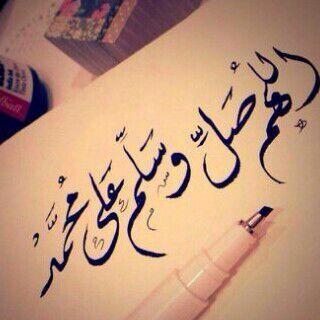 اللهم صَلِّ وسَلِّم عَلى مُحمَّدُ